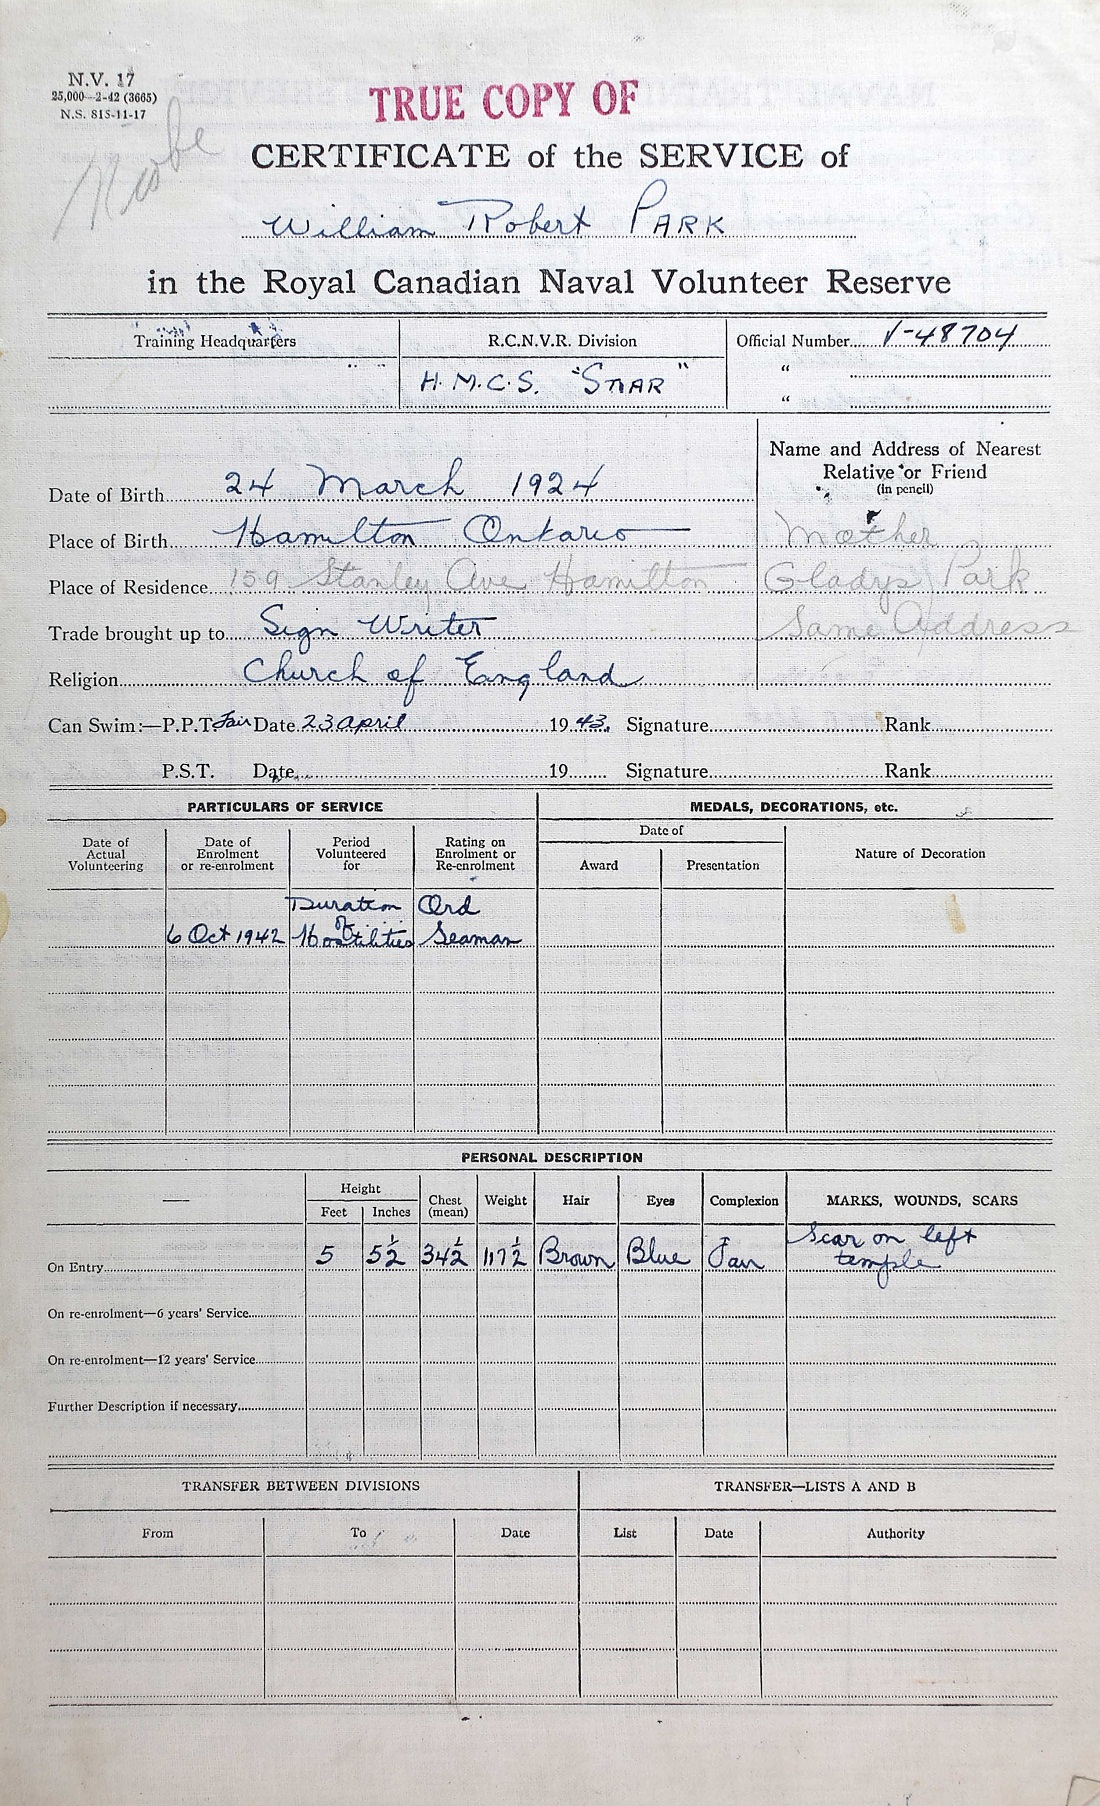 N.V. 17
25,000—2-42 (3665)
N.S. 815-11-17
Niobe
TRUE COPY OF
CERTIFICATE of the SERVICE of
William Robert PARK
in the Royal Canadian Naval Volunteer Reserve
Training Headquarters
R.C.N.V.R. Division
H.M.C.S. "STAR"
Official Number V-48704
"
"
Date of Birth 24 March 1924
Place of Birth Hamilton Ontario
Place of Residence 159 Stanley Ave Hamilton
Trade brought up to Sign Writer
Religion Church of England
Name and Address of Nearest
Relative or Friend
(in pencil)
Mother
Gladys Park
Same Address
Can Swim:—P.P.T. Fair Date 23 April 1943. Signature Rank
P.S.T. Date 19 Signature Rank
PARTICULARS OF SERVICE
MEDALS, DECORATIONS, etc.
Date of Actual Volunteering
Date of Enrolment or re-enrolment
Period Volunteered for
Rating on Enrolment or Re-enrolment
Date of
Award
Presentation
Nature of Decoration
6 Oct 1942 Duration of Hostilities Ord Seaman
PERSONAL DESCRIPTION
Height
Feet Inches Chest (mean) Weight Hair Eyes Complexion MARKS, WOUNDS, SCARS
On Entry 5 5½ 34½ 117½ Brown Blue Fair Scar on left temple
On re-enrolment—6 years' Service
On re-enrolment—12 years' Service
Further Description if necessary
TRANSFER BETWEEN DIVISIONS
TRANSFER—LISTS A AND B
From To Date List Date Authority